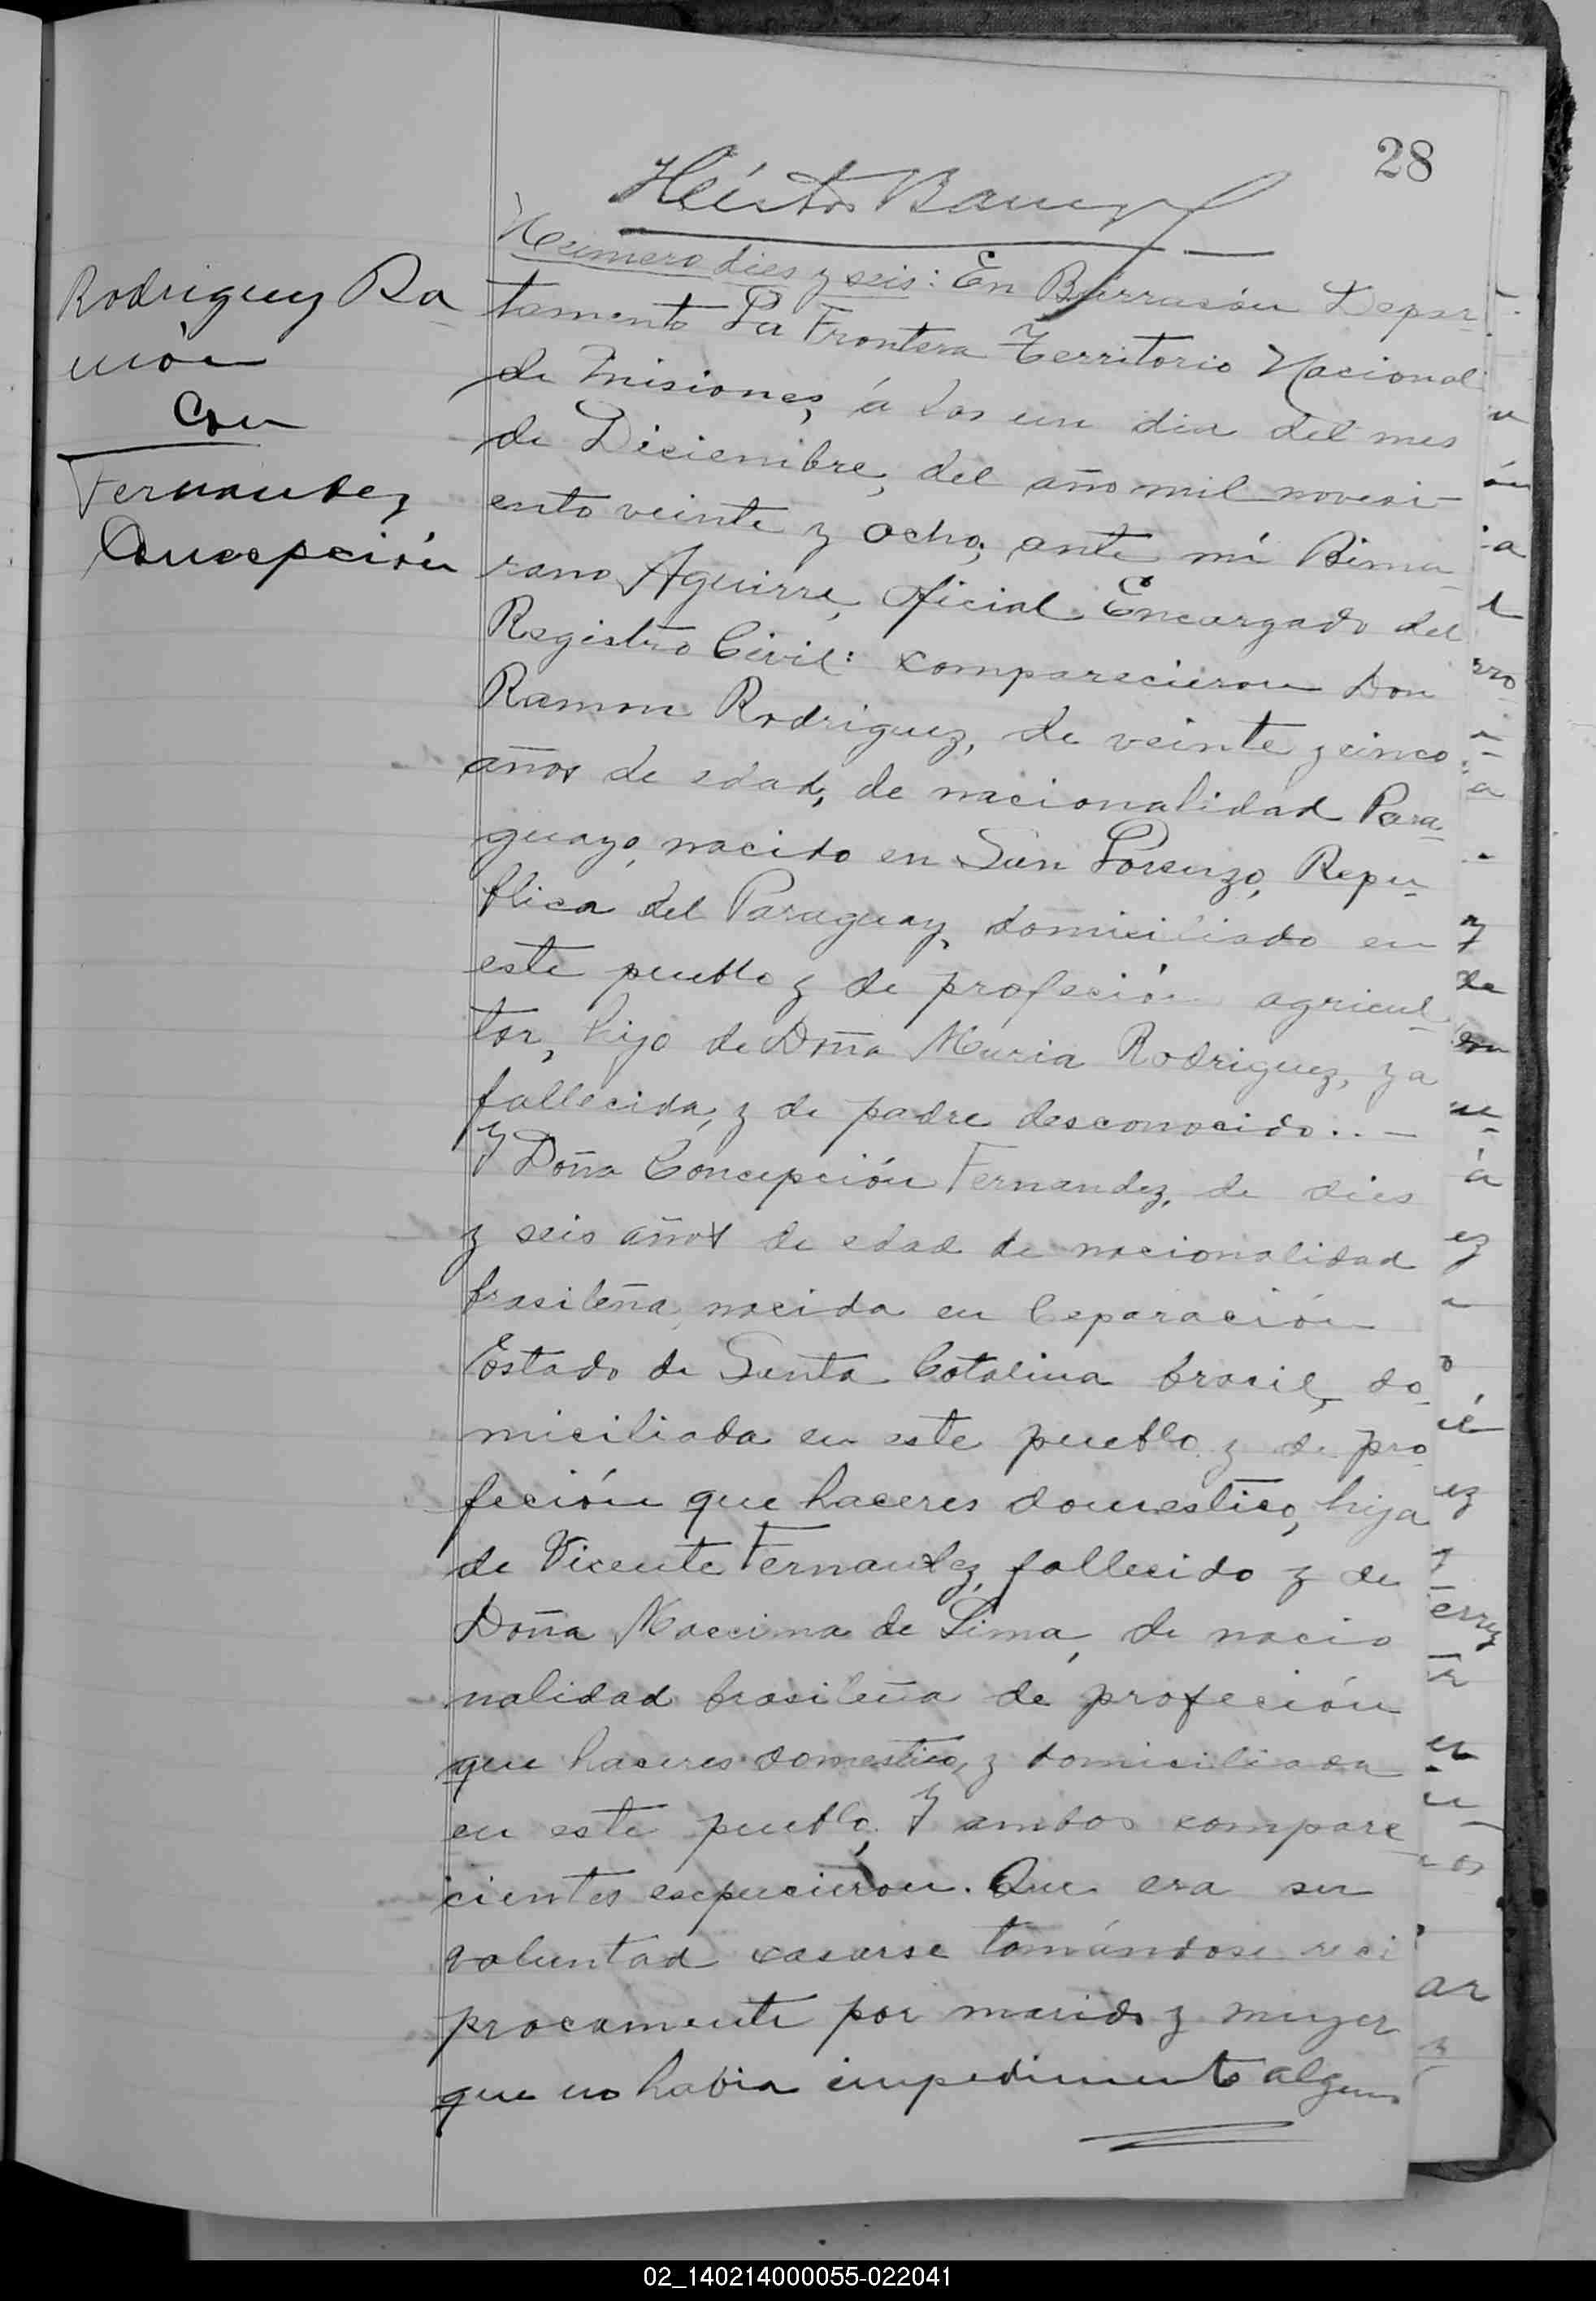 28
Rodriguez Ra
món
Con
Fernandez
Concepción
Numero dies y seis: En Barracón Depar-
tamento La Frontera Territorio Nacional
de Misiones, á los un dia del mes
de Diciembre, del año mil noveci-
ento veinte y ocho, ante mí
Aguirre, Oficial Encargado del
Registro Civil: comparecieron Don
Ramon Rodriguez, de veinte y cinco
años de edad, de nacionalidad Para
guayo, nacido en San Lorenzo, Repu-
blica del Paraguay, domiciliado en
este pueblo y de profeción agricul-
tor, hijo de Doña Maria Rodriguez, ya
fallecida, y de padre desconocido..—
Y Doña Concepción Fernandez, de dies
y seis años de edad de nacionalidad
brasileña, nacida en Ceparación
Estado de Santa Catalina brasil, do-
miciliada en este pueblo y de pro-
feción que haceres domestico, hija
de Vicente Fernandez, fallecido y de
Doña Maccima de Lima, de nacio
nalidad brasileña de profeción
que haceres domestico, y domiciliada
en este pueblo, Y ambos compare-
cientes escpucieron. Que era su
voluntad casarse tomándose reci
procamente por marido y muger
que no habia impedimento alguno
02_140214000055-022041